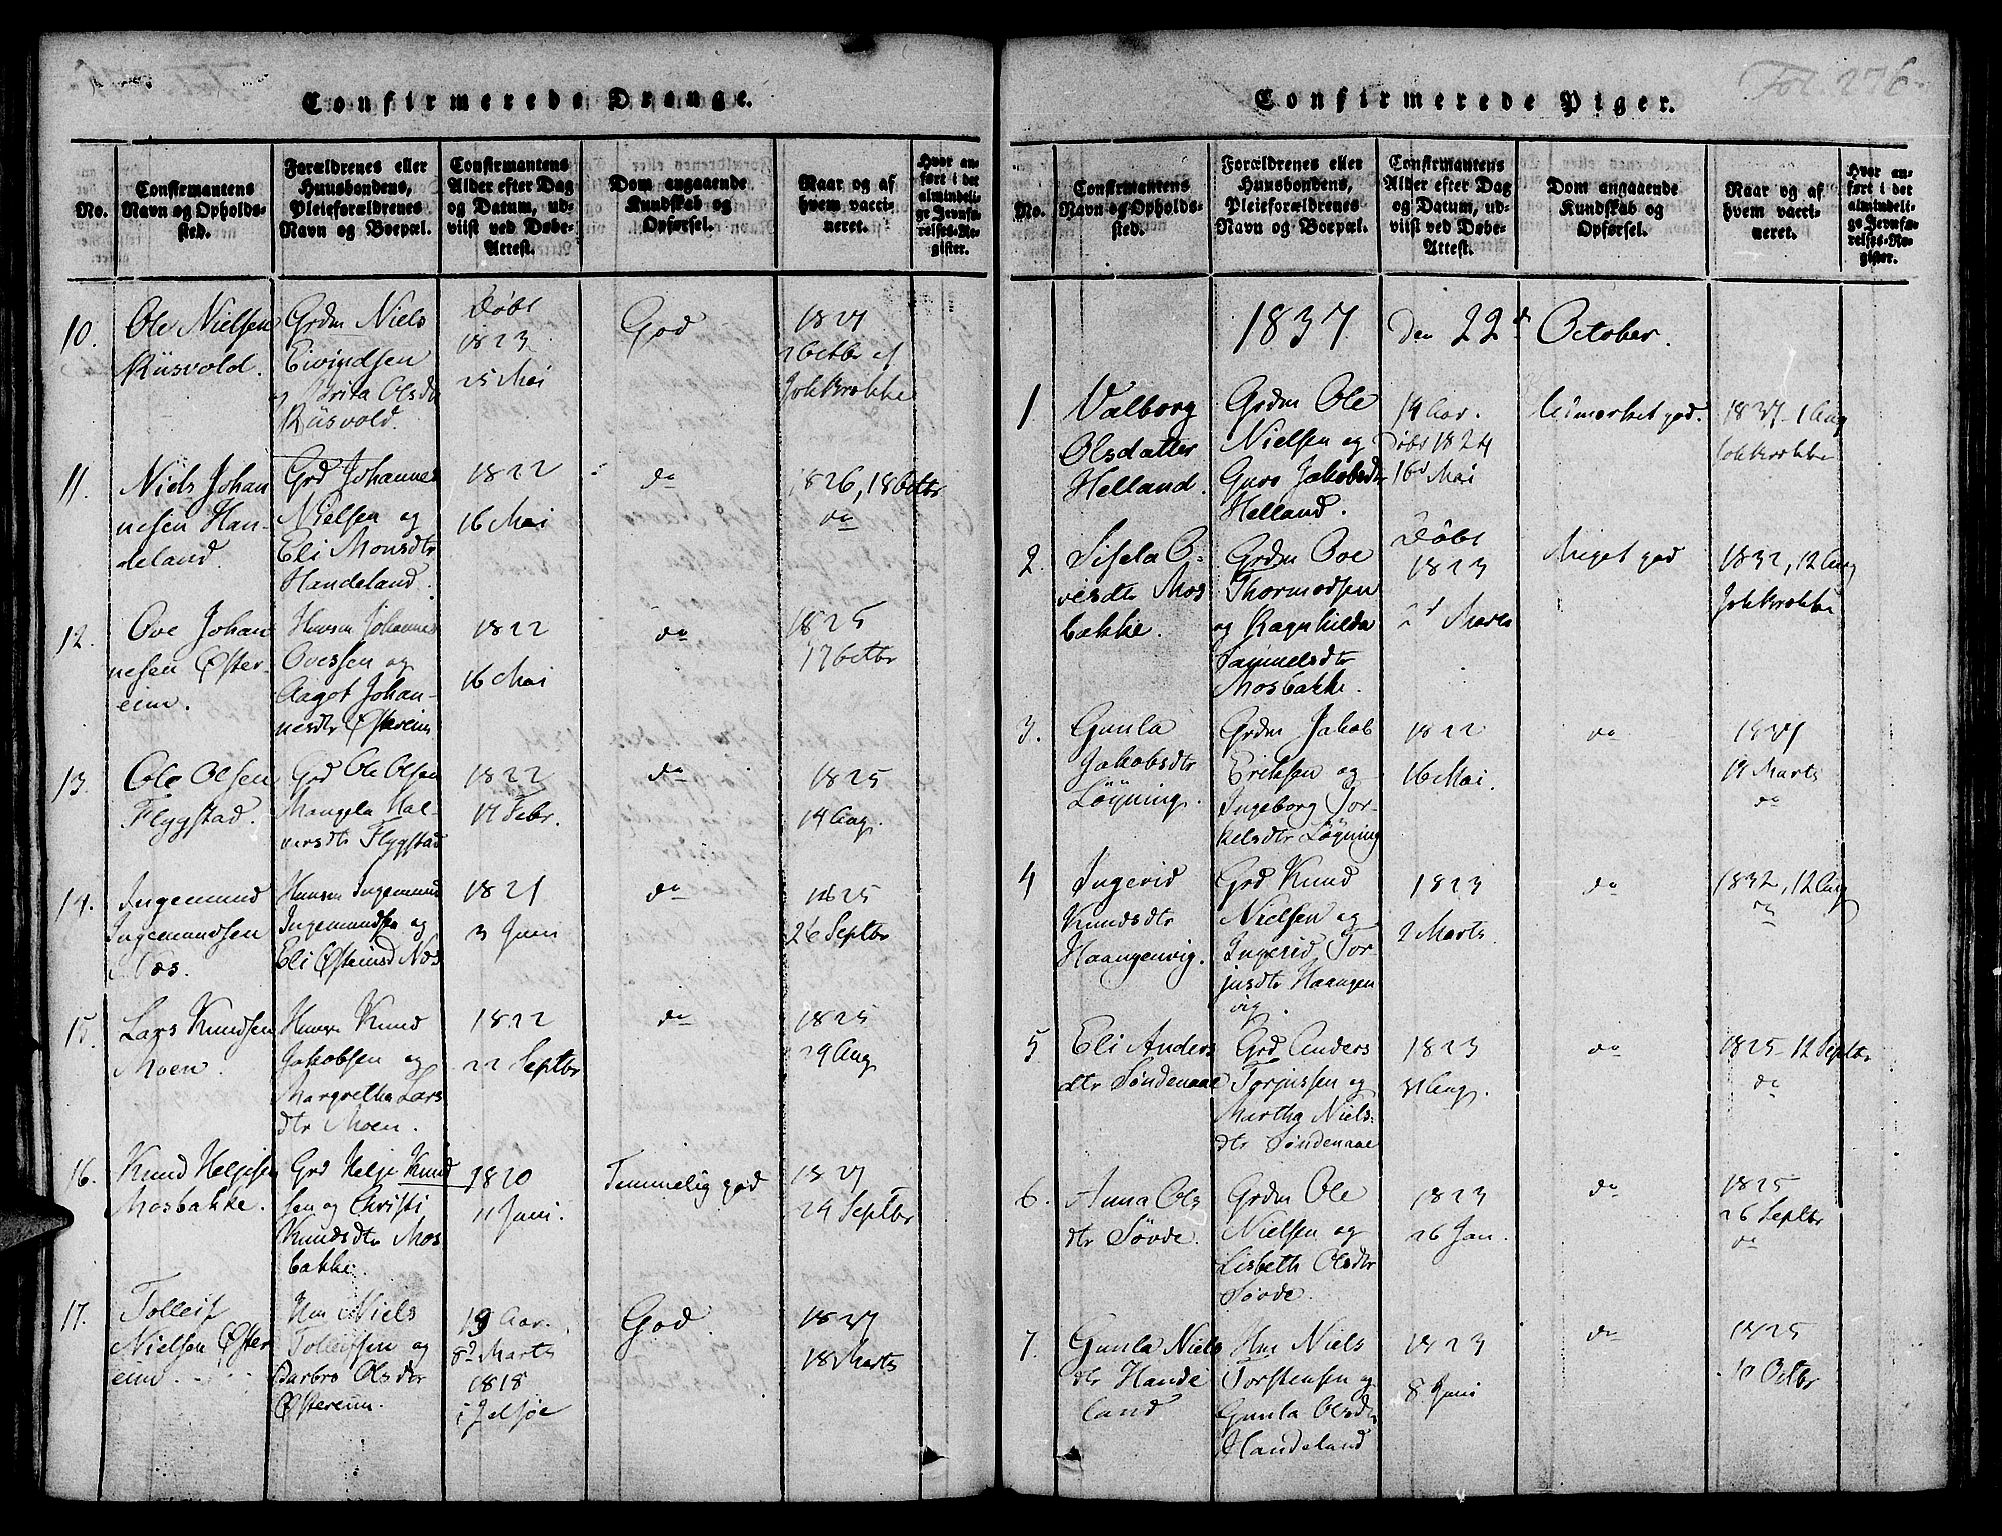 Confirmerede Drenge.
No.
Confirmantens
Navn og Opholds-
sted.
Forældrenes eller
Huusbondens,
Pleieforældrenes
Navn og Boepæl.
Confirmantens
Alder efter Dag
og Datum, ud-
viist ved Døbe-
Attest.
Dom angaaende
Kundskab og
Opførsel.
Naar og af
hvem vacci-
neret.
Hvor an-
ført i det
almindeli-
ge Jevnfø-
relses-Re-
gister.
10.
Ole Nielsen
Riisvold.
Grdm Niels
Eivindsen
og Brita Olsdr
Riisvold.
Døbt
1823
25 Mai
God
1827
26 Octbr af
Joh Brokke
11.
Niels Johan
nesen Han-
deland.
Grd Johannes
Nielsen og
Eli Monsdtr
Handeland.
1822
16 Mai
do
1826, 18 Octbr
do
12.
Ove Johan
nesen Øster-
eim.
Huusm Johannes
Ovessen og
Aagot Johan-
nesdtr Østereim
1822
16 Mai
do
1825
17 Octbr
13.
Ole Olsen
Flygstad.
Grd Ole Olsen
Mangela Hal-
vorsdtr Flygstad
1822
17 Febr.
do
1825
14 Aug.
14.
Ingemund
Ingemundsen
Næs.
Huusm Ingemund
Ingemundsen og
Eli Østeinsd Næs
1821
3 Juni
do
1825
26 Septbr
15.
Lars Knudsen
Moen.
Huusm Knud
Jakobsen og
Margretha Lars
dtr Moen.
1822
22 Septbr
do
1825
29 Aug
16.
Knud Helgesen
Mosbakke.
Grd Helje Knud
sen og Christi
Knudsdtr Mos
bakke.
1820
11 Juni.
Temmelig god
1827
24 Septbr
17.
Tolleif
Nielsen Øster
eim.
Hm Niels
Tolleifsen og
Barbro Olsdtr
Østereim.
19 Aar.
8d Marts
1818
i Jelsøe
God.
1837
18 Marts
Fol. 276.
Confirmerede Piger.
No.
Confirmantens
Navn og Opholds-
sted.
Forældrenes eller
Huusbondens,
Pleieforældrenes
Navn og Boepæl.
Confirmantens
Alder efter Dag
og Datum, ud-
viist ved Døbe-
Attest.
Dom angaaende
Kundskab og
Opførsel.
Naar og af
hvem vacci-
neret.
Hvor an-
ført i det
almindeli-
ge Jevnfø-
relses-Re-
gister.
1837 den 22d October.
1
Valborg
Olsdatter
Helland.
Grdm Ole
Nielsen og
Guro Jakobsdtr
Helland.
14 Aar.
Døbt 1824
16d Mai
Udmærket god.
1837 1 Aug
Joh Brokke
2.
Sisela O-
vesdtr Mos
bakke.
Grdm Ove
Thormodsen
og Ragnhilda
Samuelsdtr
Mosbakke.
Døbt
1823
2d Marts
Meget god
1832, 12 Aug
Joh Brokke
3.
Gunla
Jakobsdtr
Løyning.
Grdm Jakob
Eriksen og
Ingeborg Tor-
kelsdtr Løyning
1822
16 Mai.
do
1837
19 Marts
do
4
Ingerid
Knudsdtr
Haangenvig.
Grd Knud
Nielsen og
Ingerid Tor-
jusdtr Haangen
vig.
1823
2 Marts.
do
1832, 12 Aug
do
5
Eli Anders
dtr Søndenaae
Grd Anders
Torjussen og
Martha Niels-
dtr Søndenaae
1823
31 Aug.
do
1825 12 Septbr
do
6.
Anna Ols
dtr Søvde.
Grdm Ole
Nielsen og
Lisbeth Olsdtr
Søvde.
1823
26 Jan.
do
1825
26 Septbr
do
7.
Gunla Niels
dtr Hande
land
Hm Niels
Torstensen og
Gunla Olsdtr
Handeland
1823
8 Juni
do
1825
10 Octbr